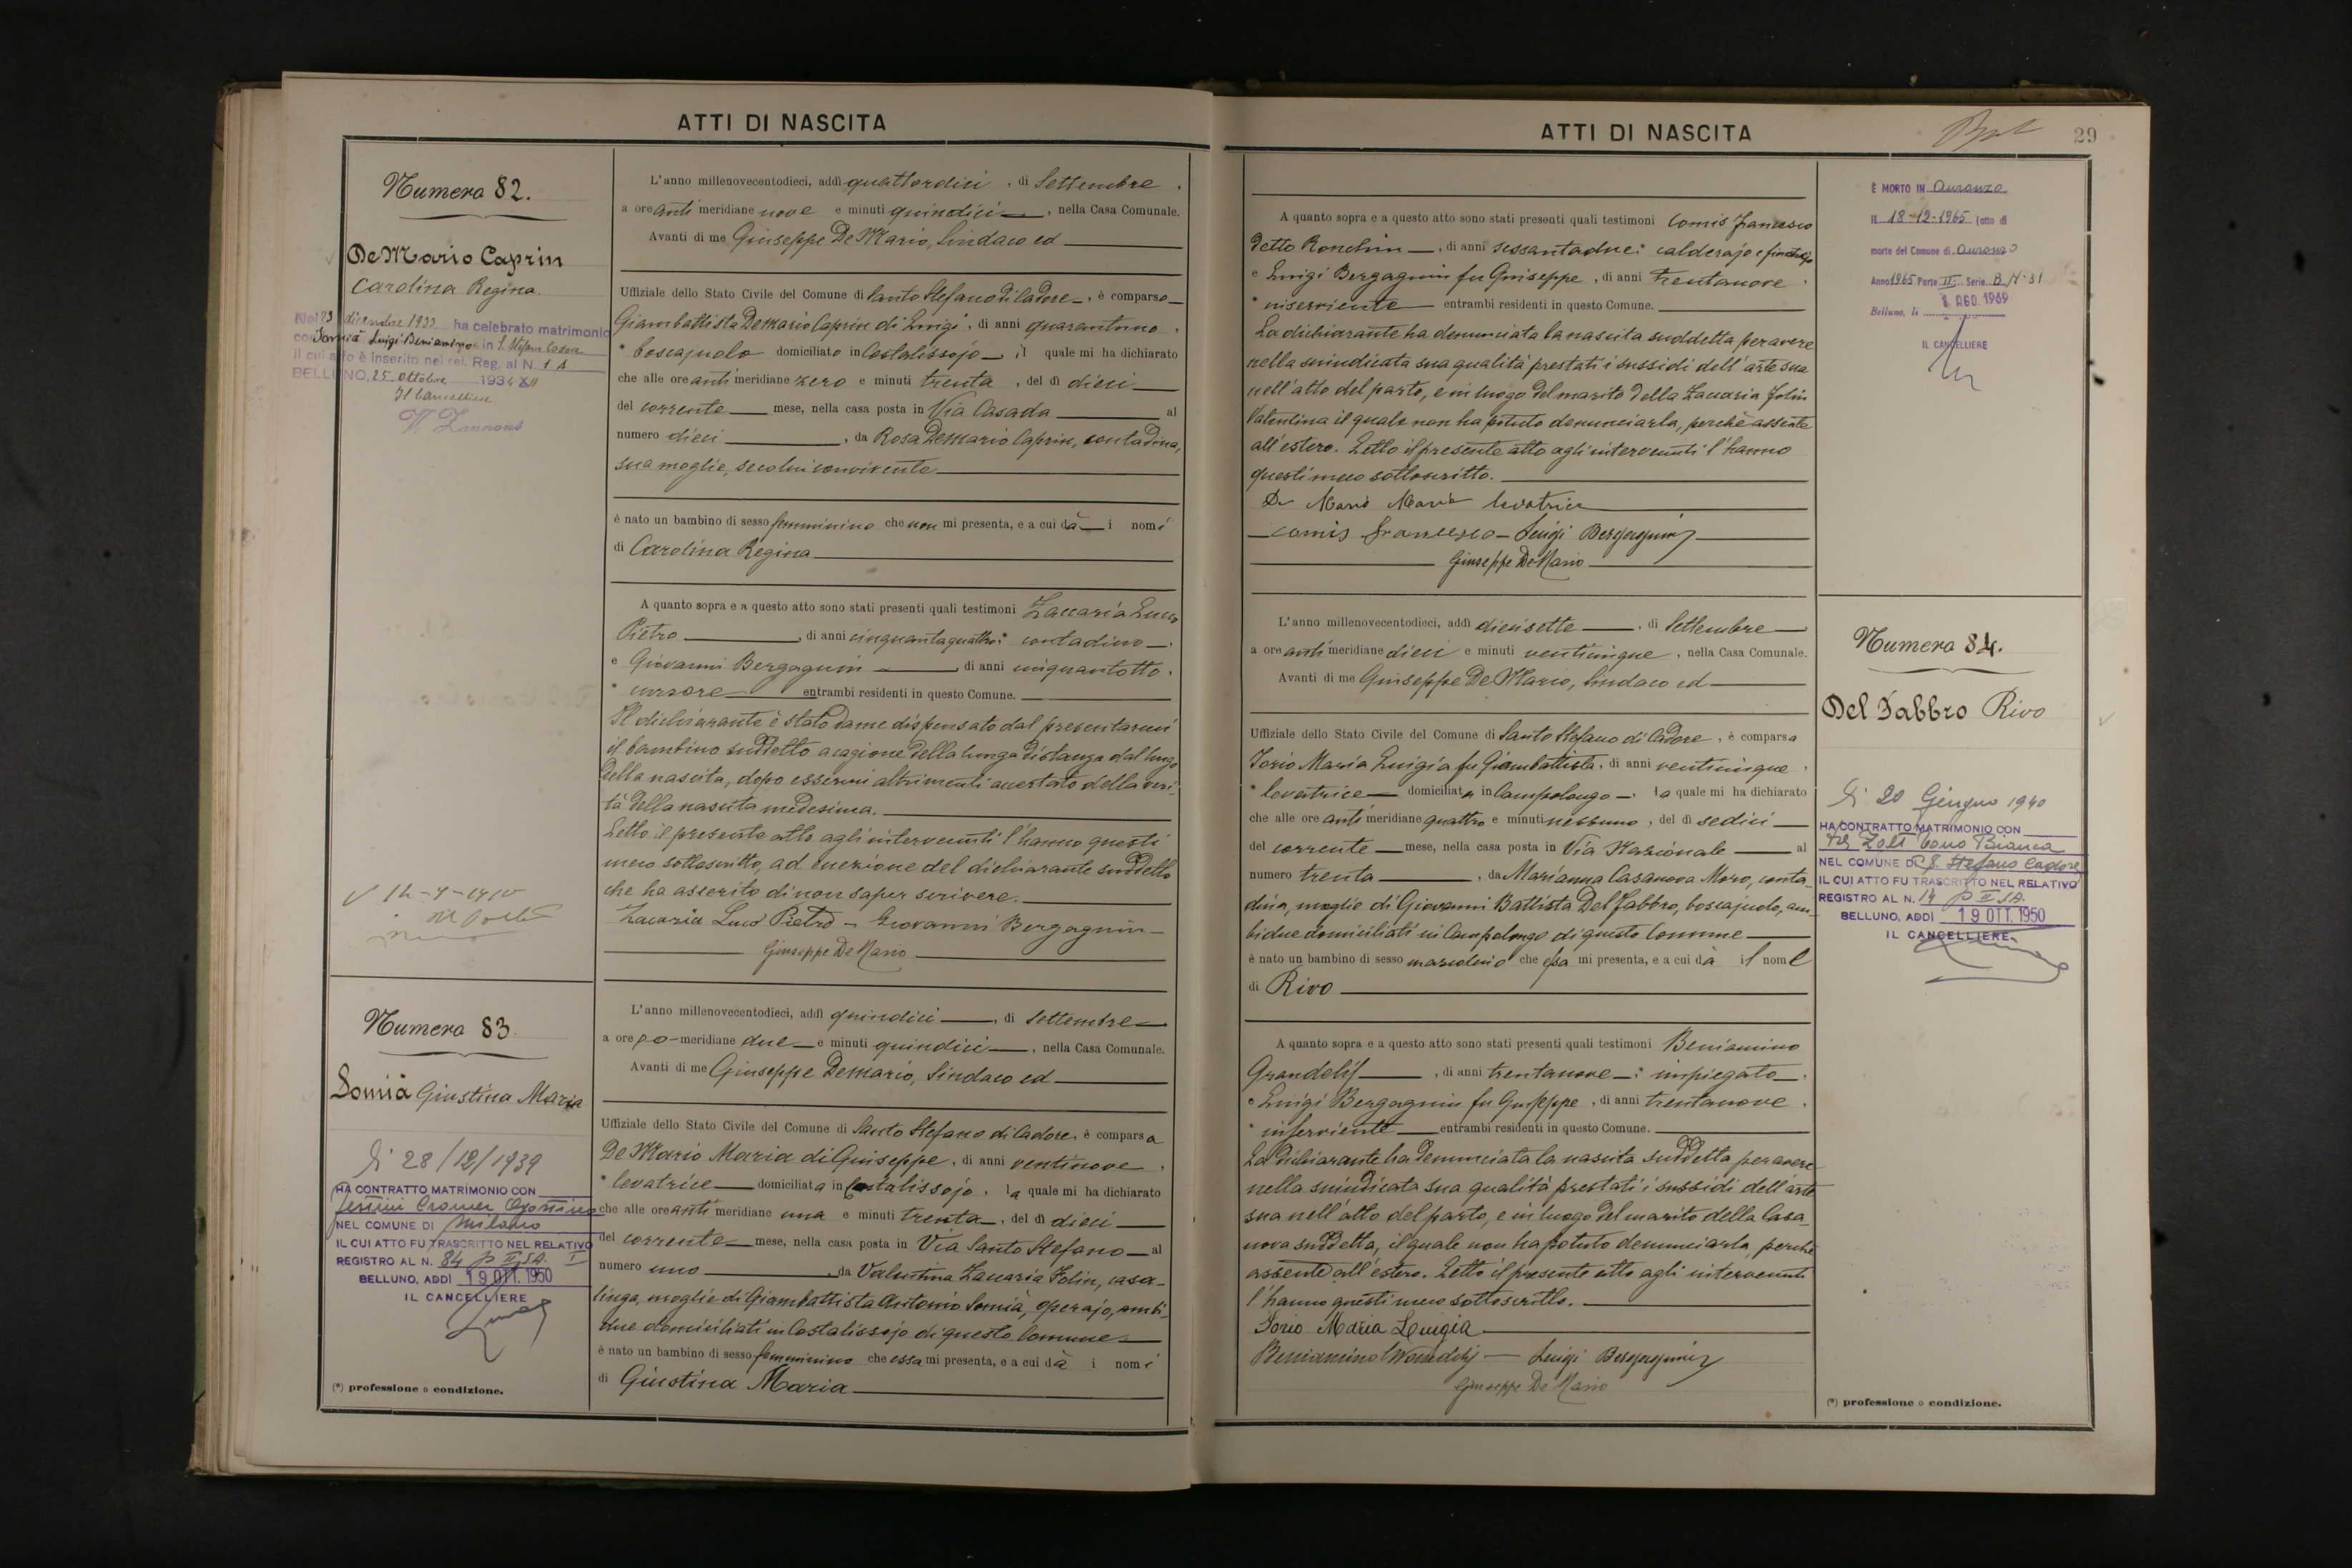 ATTI DI NASCITA
Numero 82.
De Mario Caprin
Carolina Regina.
Nel 23 dicembre 1933 ha celebrato matrimonio
con Somià Luigi Beniamino in S. Stefano Cadore
il cui atto è inserito nel rel. Reg. al N. 1 A
BELLUNO, 25 Ottobre 1934 XII
Il Cancelliere
L'anno millenovecentodieci, addì quattordici, di Settembre,
a ore anti meridiane nove e minuti quindici, nella Casa Comunale.
Avanti di me Giuseppe De Mario, Sindaco ed
Uffiziale dello Stato Civile del Comune di Santo Stefano di Cadore, è comparso
Giambattista Demario Caprin di Luigi, di anni quarantuno,
* boscajuolo domiciliato in Costalissojo, il quale mi ha dichiarato
che alle ore anti meridiane zero e minuti trenta, del dì dieci
del corrente mese, nella casa posta in Via Casada al
numero dieci, da Rosa Demario Caprin, contadina,
sua moglie, seco lui convivente
è nato un bambino di sesso femminino che non mi presenta, e a cui dà i nomi
di Carolina Regina
A quanto sopra e a questo atto sono stati presenti quali testimoni Zaccaria Luco
Pietro, di anni cinquantaquattro * contadino
e Giovanni Bergagnin, di anni cinquantotto,
* cursore entrambi residenti in questo Comune.
Il dichiarante è stato da me dispensato dal presentarmi
il bambino suddetto a cagione della lunga distanza dal luogo
della nascita, dopo essermi altrimenti accertato della veri-
tà della nascita medesima.
Letto il presente atto agli intervenuti l'hanno questi
meco sottoscritto, ad eccezione del dichiarante suddetto
che ha asserito di non saper scrivere.
Zacaria Luco Pietro - Giovanni Bergagnin
Giuseppe De Mario
Numero 83.
Somià Giustina Maria
Li 28/12/1939
HA CONTRATTO MATRIMONIO CON
NEL COMUNE DI Milano
IL CUI ATTO FU TRASCRITTO NEL RELATIVO
REGISTRO AL N. 84 P II S.A.
BELLUNO, ADDÌ 19 OTT. 1950
IL CANCELLIERE
(*) professione o condizione.
L'anno millenovecentodieci, addì quindici, di Settembre
a ore po-meridiane due e minuti quindici, nella Casa Comunale.
Avanti di me Giuseppe Demario, Sindaco ed
Uffiziale dello Stato Civile del Comune di Santo Stefano di Cadore, è comparsa
De Mario Maria di Giuseppe, di anni ventinove,
* levatrice domiciliata in Costalissojo, la quale mi ha dichiarato
che alle ore anti meridiane una e minuti trenta, del dì dieci
del corrente mese, nella casa posta in Via Santo Stefano al
numero uno, da Valentina Zaccaria Folin, casa-
linga, moglie di Giambattista Antonio Somià, operajo, ambi-
due domiciliati in Costalissojo di questo Comune
è nato un bambino di sesso femminino che essa mi presenta, e a cui dà i nomi
di Giustina Maria
ATTI DI NASCITA
29
A quanto sopra e a questo atto sono stati presenti quali testimoni Comis Francesco
detto Ronchin, di anni sessantadue * calderajo
e Luigi Bergagnin fu Giuseppe, di anni trentanove,
* inserviente entrambi residenti in questo Comune.
La dichiarante ha denunciata la nascita suddetta per avere
nella suindicata sua qualità prestati i sussidi dell'arte sua
nell'atto del parto, e in luogo del marito della Zaccaria Folin
Valentina il quale non ha potuto denunciarla, perchè assente
all'estero. Letto il presente atto agli intervenuti l'hanno
questi meco sottoscritto.
De Mario Maria levatrice
Comis Francesco - Luigi Bergagnin
Giuseppe De Mario
È MORTO IN Auronzo
IL 18-12-1965 (atto di
morte del Comune di Auronzo
Anno 1965 Parte II Serie B N. 31
Belluno, li 1 AGO. 1969
IL CANCELLIERE
L'anno millenovecentodieci, addì diciisette, di Settembre
a ore anti meridiane dieci e minuti venticinque, nella Casa Comunale.
Avanti di me Giuseppe De Mario, Sindaco ed
Uffiziale dello Stato Civile del Comune di Santo Stefano di Cadore, è comparsa
Iorio Maria Luigia fu Giambattista, di anni venticinque,
* levatrice domiciliata in Campolongo, la quale mi ha dichiarato
che alle ore anti meridiane quattro e minuti nessuno, del dì sedici
del corrente mese, nella casa posta in Via Nazionale al
numero trenta, da Marianna Casanova Moro, conta-
dina, moglie di Giovanni Battista Del Fabbro, boscajuolo, am-
bidue domiciliati in Campolongo di questo Comune
è nato un bambino di sesso mascolino che essa mi presenta, e a cui dà il nome
di Rivo
A quanto sopra e a questo atto sono stati presenti quali testimoni Beniamino
Grandelis, di anni trentanove * impiegato
e Luigi Bergagnin fu Giuseppe, di anni trentanove,
* inserviente entrambi residenti in questo Comune.
La dichiarante ha denunciata la nascita suddetta per avere
nella suindicata sua qualità prestati i sussidi dell'arte
sua nell'atto del parto, e in luogo del marito della Casa-
nova suddetta, il quale non ha potuto denunciarla, perchè
assente all'estero. Letto il presente atto agli intervenuti
l'hanno questi meco sottoscritto.
Iorio Maria Luigia
Beniamino Grandelis - Luigi Bergagnin
Giuseppe De Mario
Numero 84.
Del Fabbro Rivo
Li 20 Giugno 1940
HA CONTRATTO MATRIMONIO CON
De Zolt Bianca
NEL COMUNE DI S. Stefano Cadore
IL CUI ATTO FU TRASCRITTO NEL RELATIVO
REGISTRO AL N. 14 P II S.A.
BELLUNO, ADDÌ 19 OTT. 1950
IL CANCELLIERE
(*) professione o condizione.